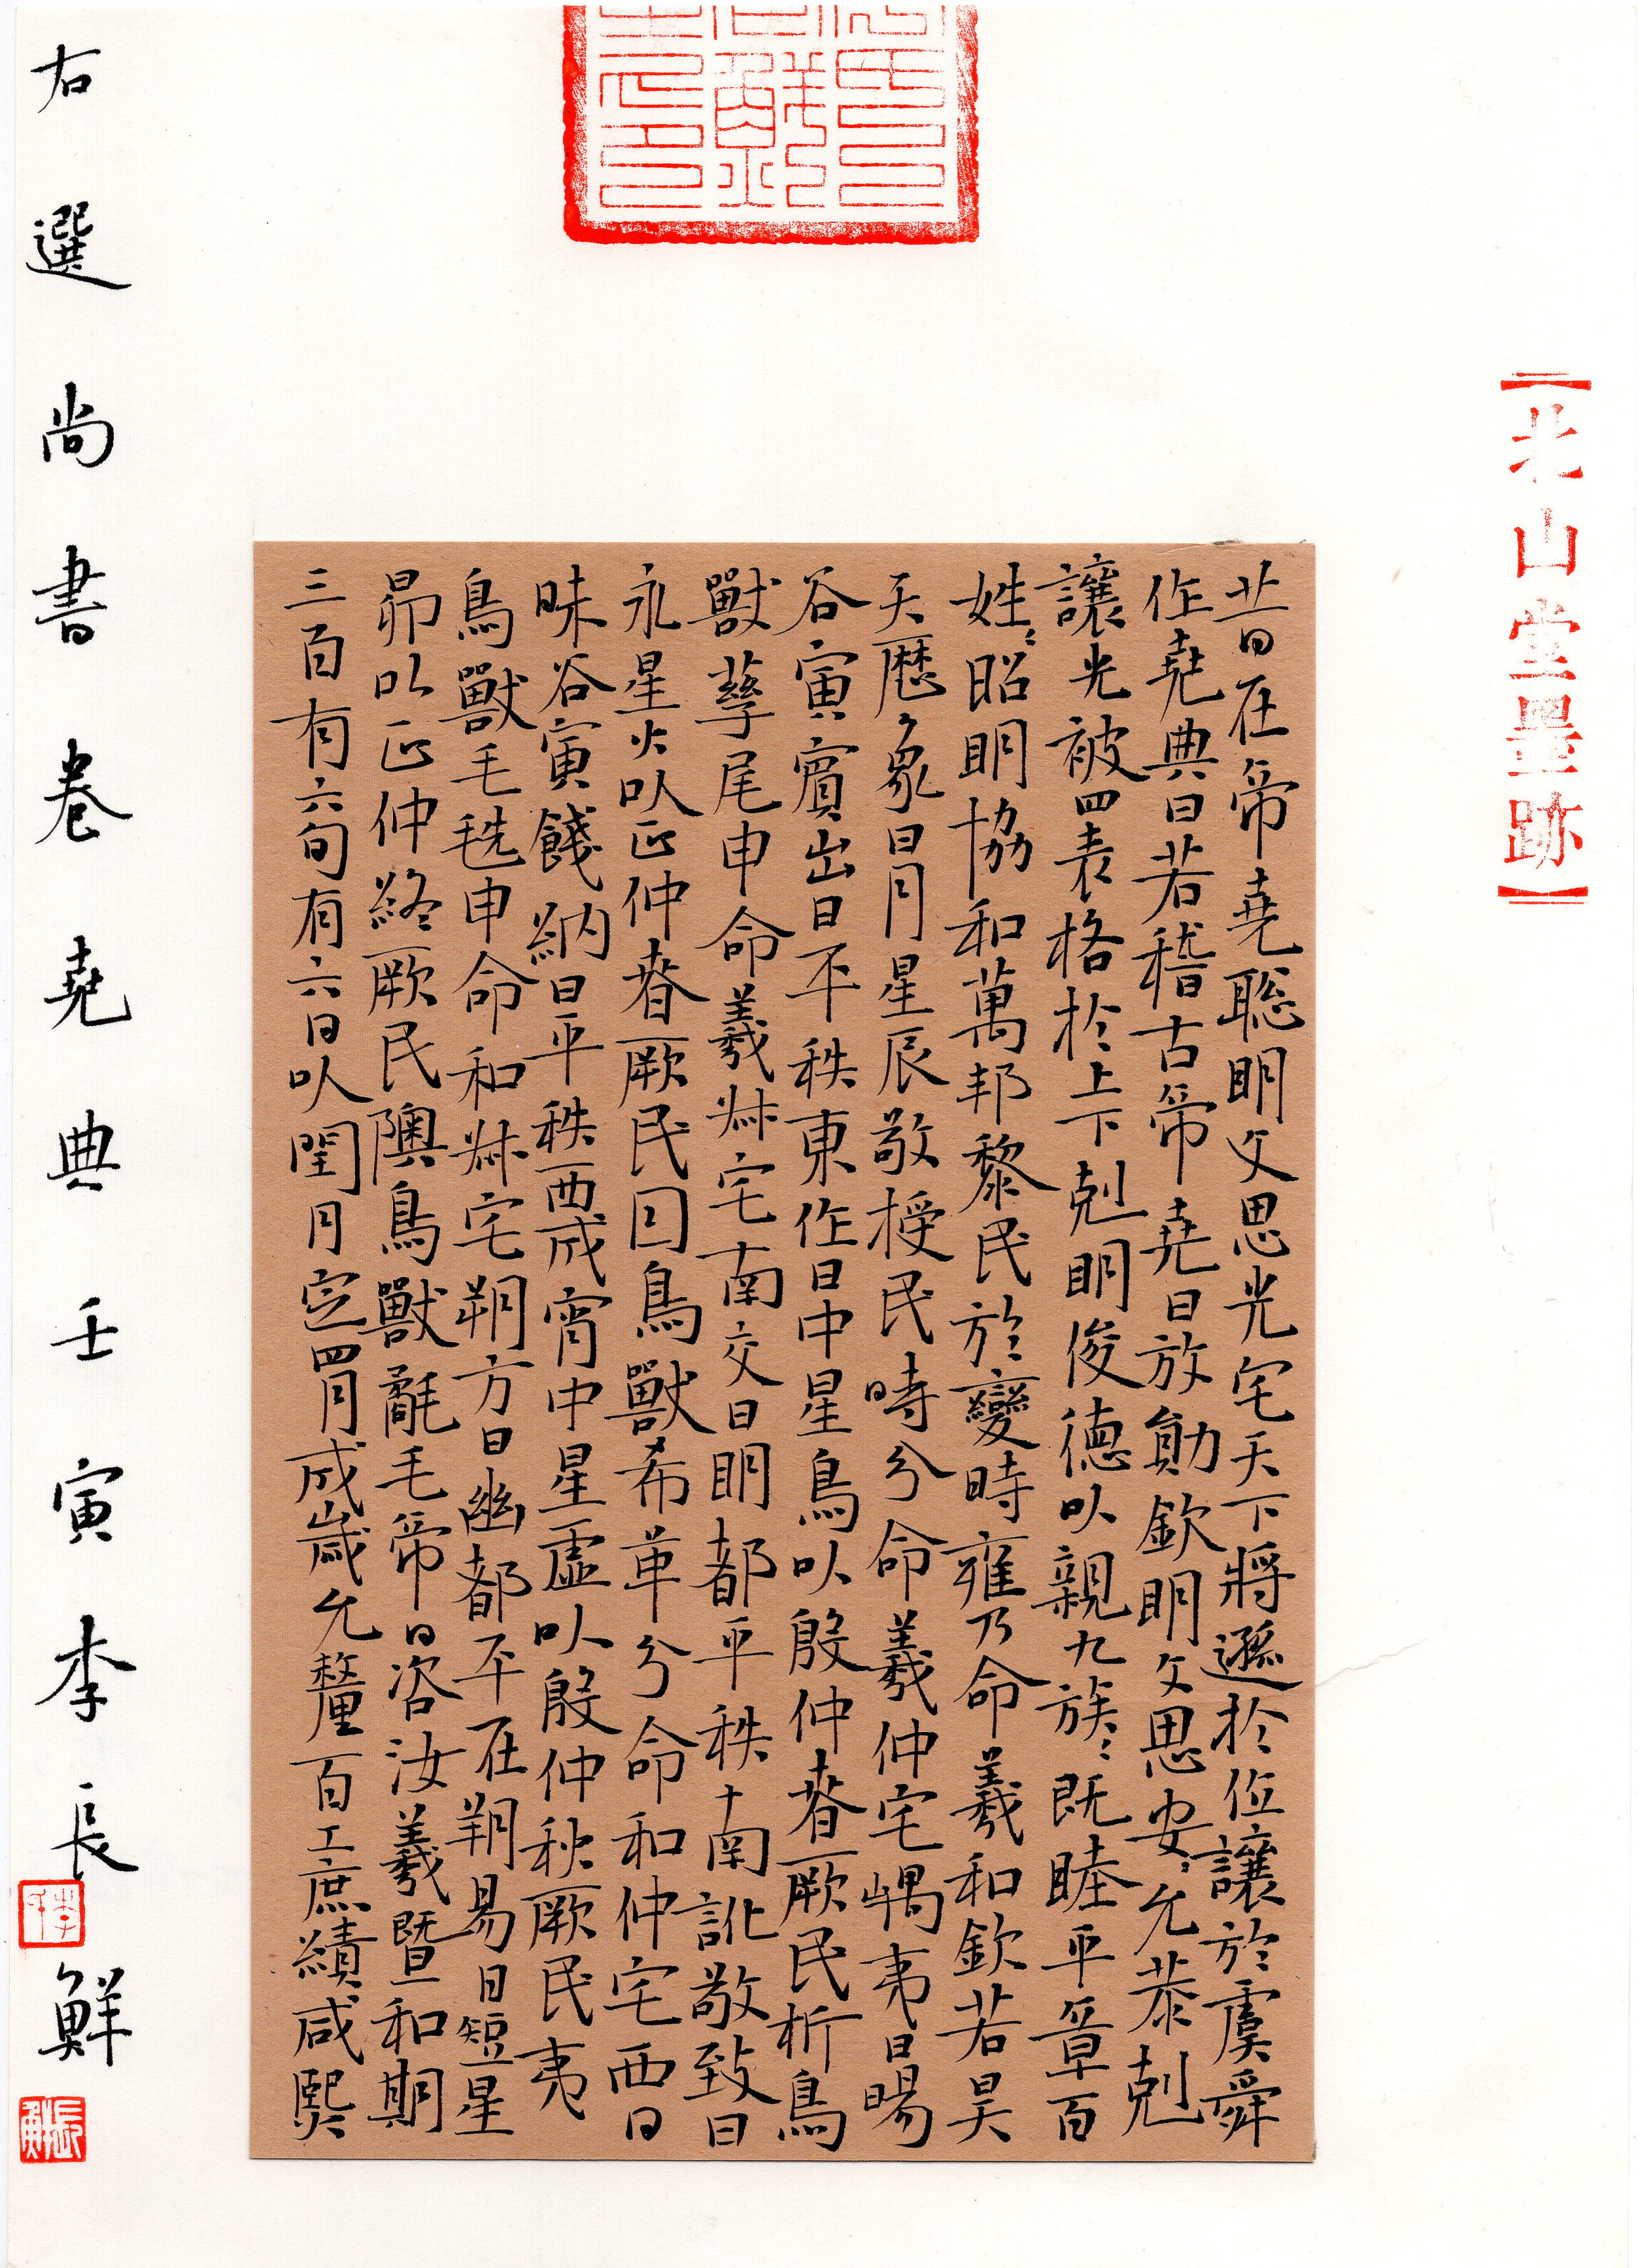 北山堂墨跡
昔在帝堯聡明文思光宅天下將遜於位讓於虞舜
作堯典曰若稽古帝堯曰放勛欽明文思安〻允恭剋
讓光被四表格於上下剋明俊德以親九族〻既睦平章百
姓〻昭明協和萬邦黎民於變時雍乃命羲和欽若昊
天歷象日月星辰敬授民時分命羲仲宅嵎夷曰暘
谷寅賓出日平秩東作日中星鳥以殷仲春厥民析鳥
獸孳尾申命羲叔宅南交曰明都平秩南訛敬致日
永星火以正仲春厥民因鳥獸希革分命和仲宅西曰
昧谷寅餞納日平秩西成宵中星虛以殷仲秋厥民夷
鳥獸毛毨申命和叔宅朔方曰幽都平在朔易日短星
昴以正仲終厥民隩鳥獸氄毛帝曰咨汝羲暨和期
三百有六旬有六日以閏月定四月成歲允釐百工庶績咸熙
右選尚書卷堯典壬寅李長鮮